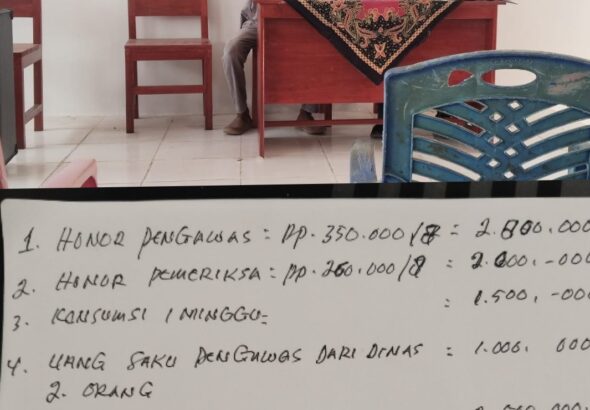 1. HONOR PENGAWAS = Rp. 350.000/8 = 2.800.000
2. HONOR PEMERIKSA = Rp. 260.000/8 = 2.000.-000
3. KONSUMSI 1 MINGGU = : 1.500.-000
4. UANG SAKU PENGAWAS DARI DINAS : 1.000. 000
2. ORANG